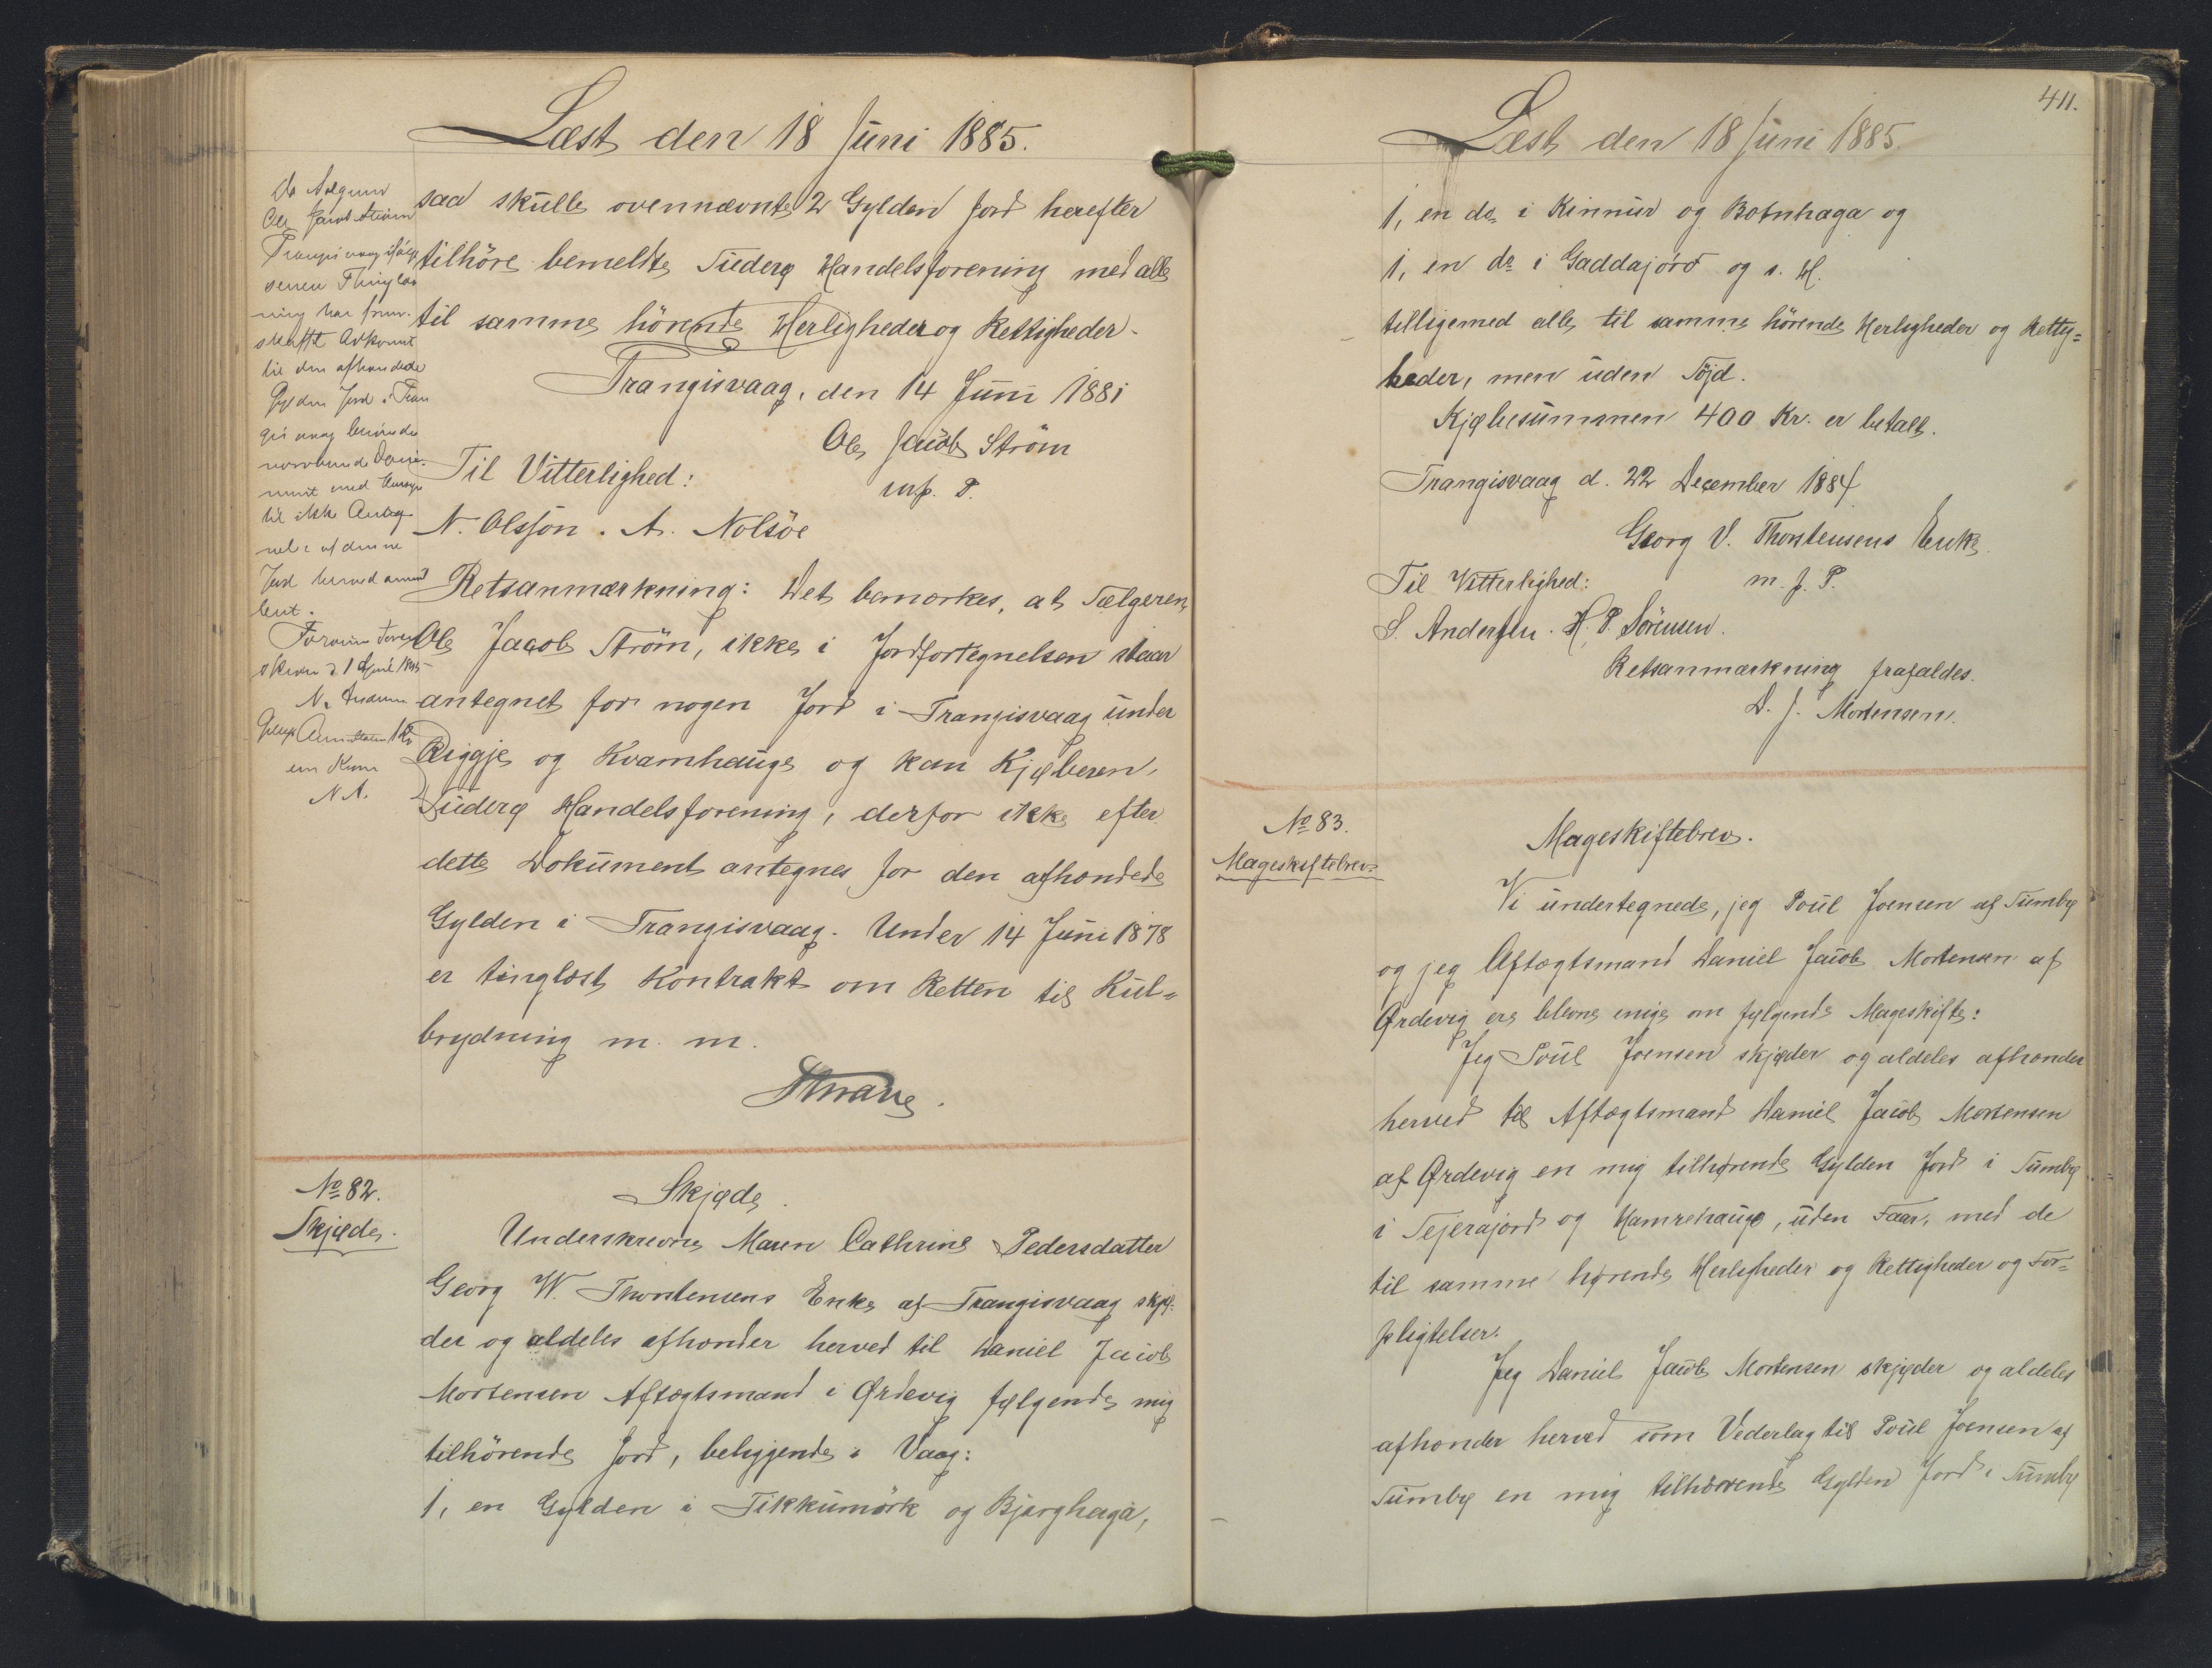 Læst den 18 Juni 1885.
Da Sælgeren
Ole Jacob Strøm
Trangisvaag ifølge
senere Thinglæs
ning har frem-
skaffet Adkomst
til den afhændede
Gylden Jord i Tran
gisvaag
nærværende Docu-
ment med Hensyn
til ikke Anteg-
nelse af denne
Jord herved
lent.
skriveri d 1 April 1885
N. A.
saa skulle ovennævnte 2 Gylden Jord herefter
tilhöre bemeldte Suderø Handelsforening med alle
til samme hörende Herligheder og Rettigheder.
Trangisvaag, den 14 Juni 1881
Ole Jacob Ström
m. f. P.
Til Vitterlighed:
N. Olsson. A. Nolsöe
Retsanmærkning: Det bemærkes, at Sælgeren,
Ole Jacob Strøm, ikke i Jordfortegnelsen staar
antegnet for nogen Jord i Trangisvaag under
Riggje og Kvamhauge og kan Kjøberen,
Suderø Handelsforening, derfor ikke efter
dette Dokument antegnes for den afhændede
Gylden i Trangisvaag. Under 14 Juni 1878
er tinglæst Kontrakt om Retten til Kul-
brydning m. m.
No 82.
Skjøde.
Skjøde.
Underskrevne Maren Cathrine Pedersdatter
Georg W. Thorstensens Enke af Trangisvaag skjø-
der og aldeles afhænder herved til Daniel Jacob
Mortensen Aftægtsmand i Ørdevig følgende mig
tilhörende Jord, beliggende i Vaag:
1, en Gylden i Tikkumörk og Bjarghaga,
411.
Læst den 18 Juni 1885
1, en do i Kinnur og Botnhaga og
1, en do i Gaddajörd og s. H.
tilligemed alle til samme hörende Herligheder og Rettig=
heder, men uden Töjd.
Kjøbesummen 400 Kr. er betalt.
Trangisvaag d. 22 December 1884
Georg V. Thorstensens Enke.
m. f. P.
Til Vitterlighed:
S. Andersen. H. P. Sörensen.
Retsanmærkning frafaldes.
D. J. Mortensen.
No 83.
Mageskiftebrev.
Mageskiftebrev.
Vi undertegnede, jeg Poul Joensen af Sumbø
og jeg Aftægtsmand Daniel Jacob Mortensen af
Ørdevig ere blevne enige om følgende Mageskifte:
Jeg Poul Joensen skjøder og aldeles afhænder
herved til Aftægtsmand Daniel Jacob Mortensen
af Ørdevig en mig tilhørende Gylden Jord i Sumbø
i Tejerajord og Hamrehauge, uden Faar, med de
til samme hørende Herligheder og Rettigheder og For-
pligtelser.
Jeg Daniel Jacob Mortensen skjøder og aldeles
afhænder herved som Vederlag til Poul Joensen af
Sumbø en mig tilhørende Gylden Jord i Sumbø